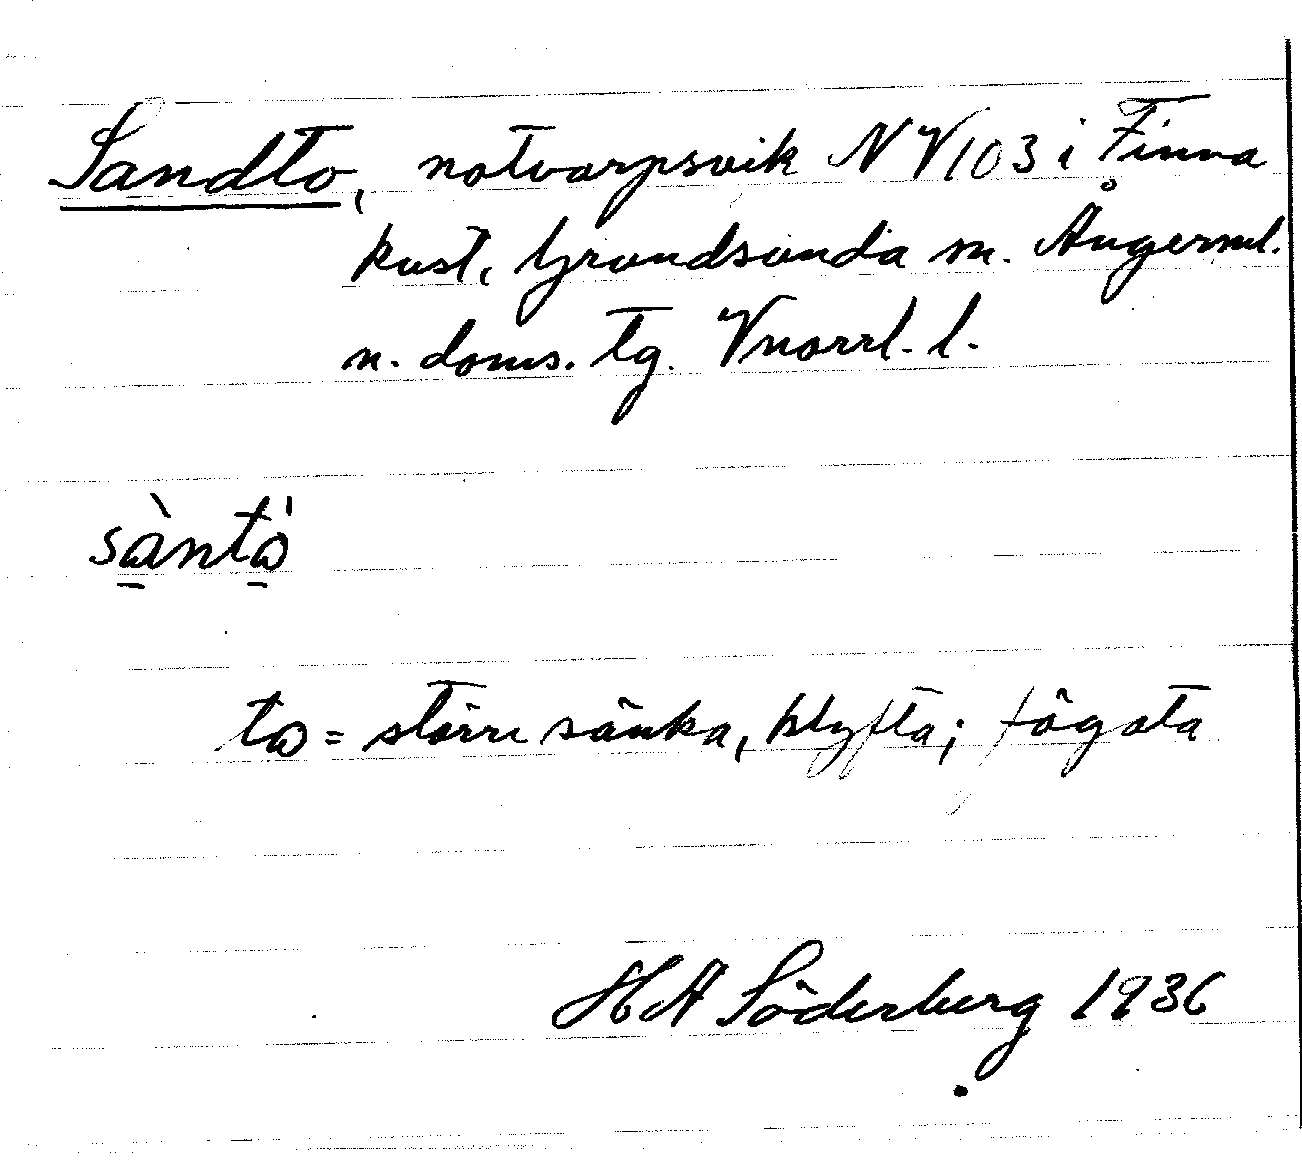 Sandto, notvarpsvik NV103 i Finna
kust, Grundsunda sn. Ångerml.
n. doms. tg. Vnorrl. l.
sàntò
to = större sänka, klyfta; fögata
HA Söderberg 1936